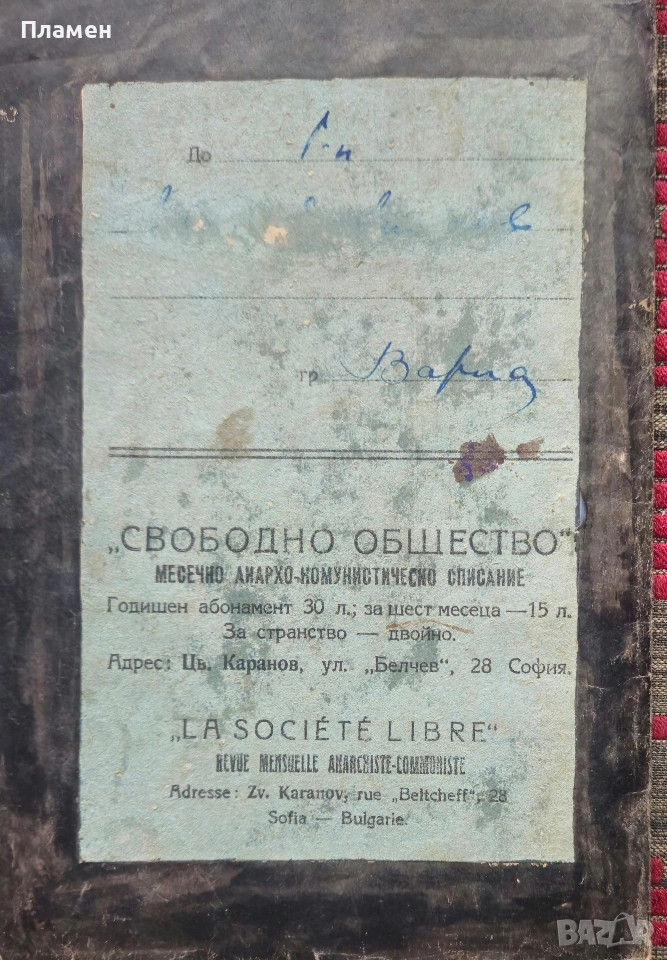 Пламен
До г-н
гр. Варна
„СВОБОДНО ОБЩЕСТВО“
МЕСЕЧНО АНАРХО-КОМУНИСТИЧЕСКО СПИСАНИЕ
Годишен абонамент 30 л.; за шест месеца — 15 л.
За странство — двойно.
Адрес: Цв. Каранов, ул. „Белчев“, 28 София.
„LA SOCIÉTÉ LIBRE“
REVUE MENSUELLE ANARCHISTE-COMMUNISTE
Adresse: Zv. Karanov, rue „Beltcheff“, 28
Sofia — Bulgarie.
BAZAR